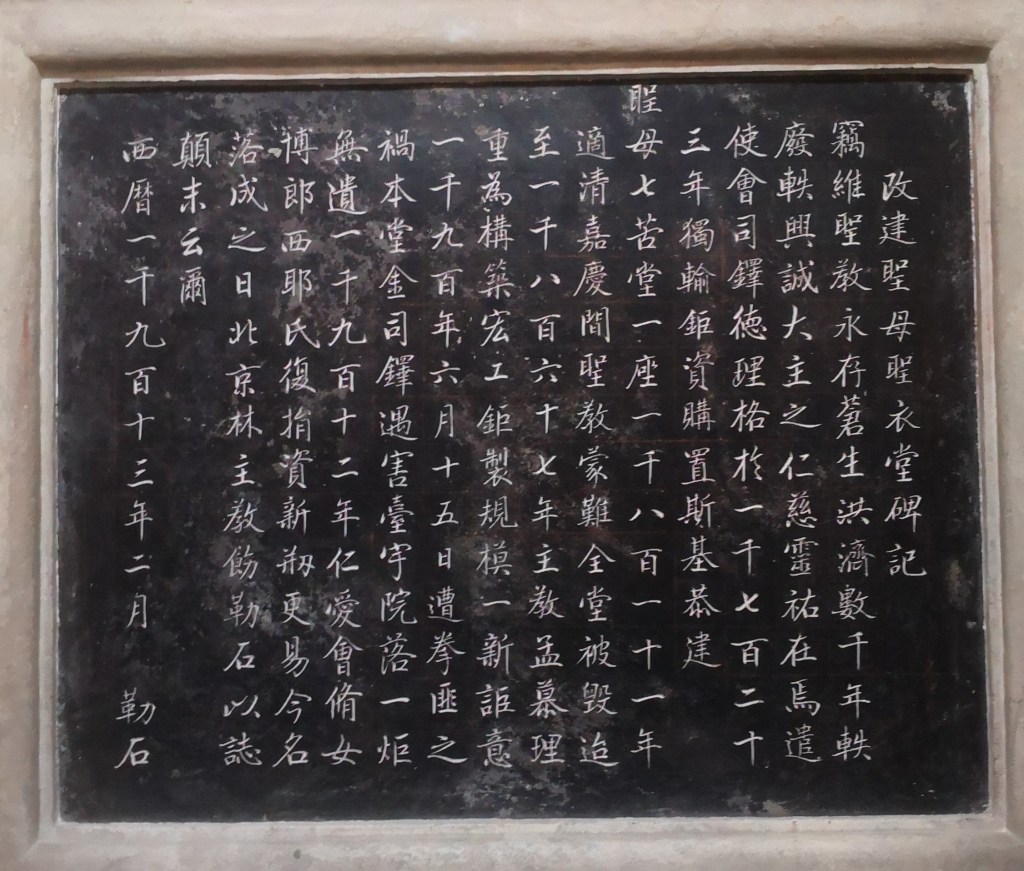 改建聖母聖衣堂碑記
竊維聖教永存蒼生洪濟數千年軼
廢軼興誠大主之仁慈靈祐在焉遣
使會司鐸德理格於一千七百二十
三年獨輸鉅資購置斯基恭建
聖母七苦堂一座一千八百一十一年
適清嘉慶間聖教蒙難全堂被毀迨
至一千八百六十七年主教孟慕理
重為構築宏工鉅製規模一新詎意
一千九百年六月十五日遭拳匪之
禍本堂金司鐸遇害臺宇院落一炬
無遺一千九百十二年仁愛會脩女
博郎西耶氏復捐資新剏更易今名
落成之日北京林主教飭勒石以誌
顛末云爾
西曆一千九百十三年二月 勒石